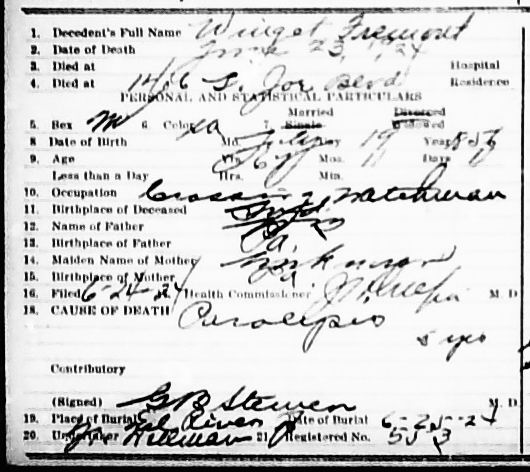 1. Decedent's Full Name Winget Fremont
2. Date of Death June 23, 1924
3. Died at Hospital
4. Died at 1416 St. Joe Blvd Residence
PERSONAL AND STATISTICAL PARTICULARS
Married Divorced
5. Sex M 6. Color 7. Single Widowed
8 Date of Birth Mo. July Day 19 Year 1856
9. Age Yrs. 67 Mos. 11 Days
Less than a Day Hrs. Min.
10. Occupation Crossing Watchman
11. Birthplace of Deceased
12. Name of Father
13. Birthplace of Father Pa.
14. Maiden Name of Mother
15. Birthplace of Mother
16. Filed 6-24-24 Health Commissioner M. D.
18. CAUSE OF DEATH Paralysis
yrs
Contributory
(Signed) M. D.
19. Place of Burial Eel River Date of Burial 6-25-24
20. Undertaker 21 Registered No. 553